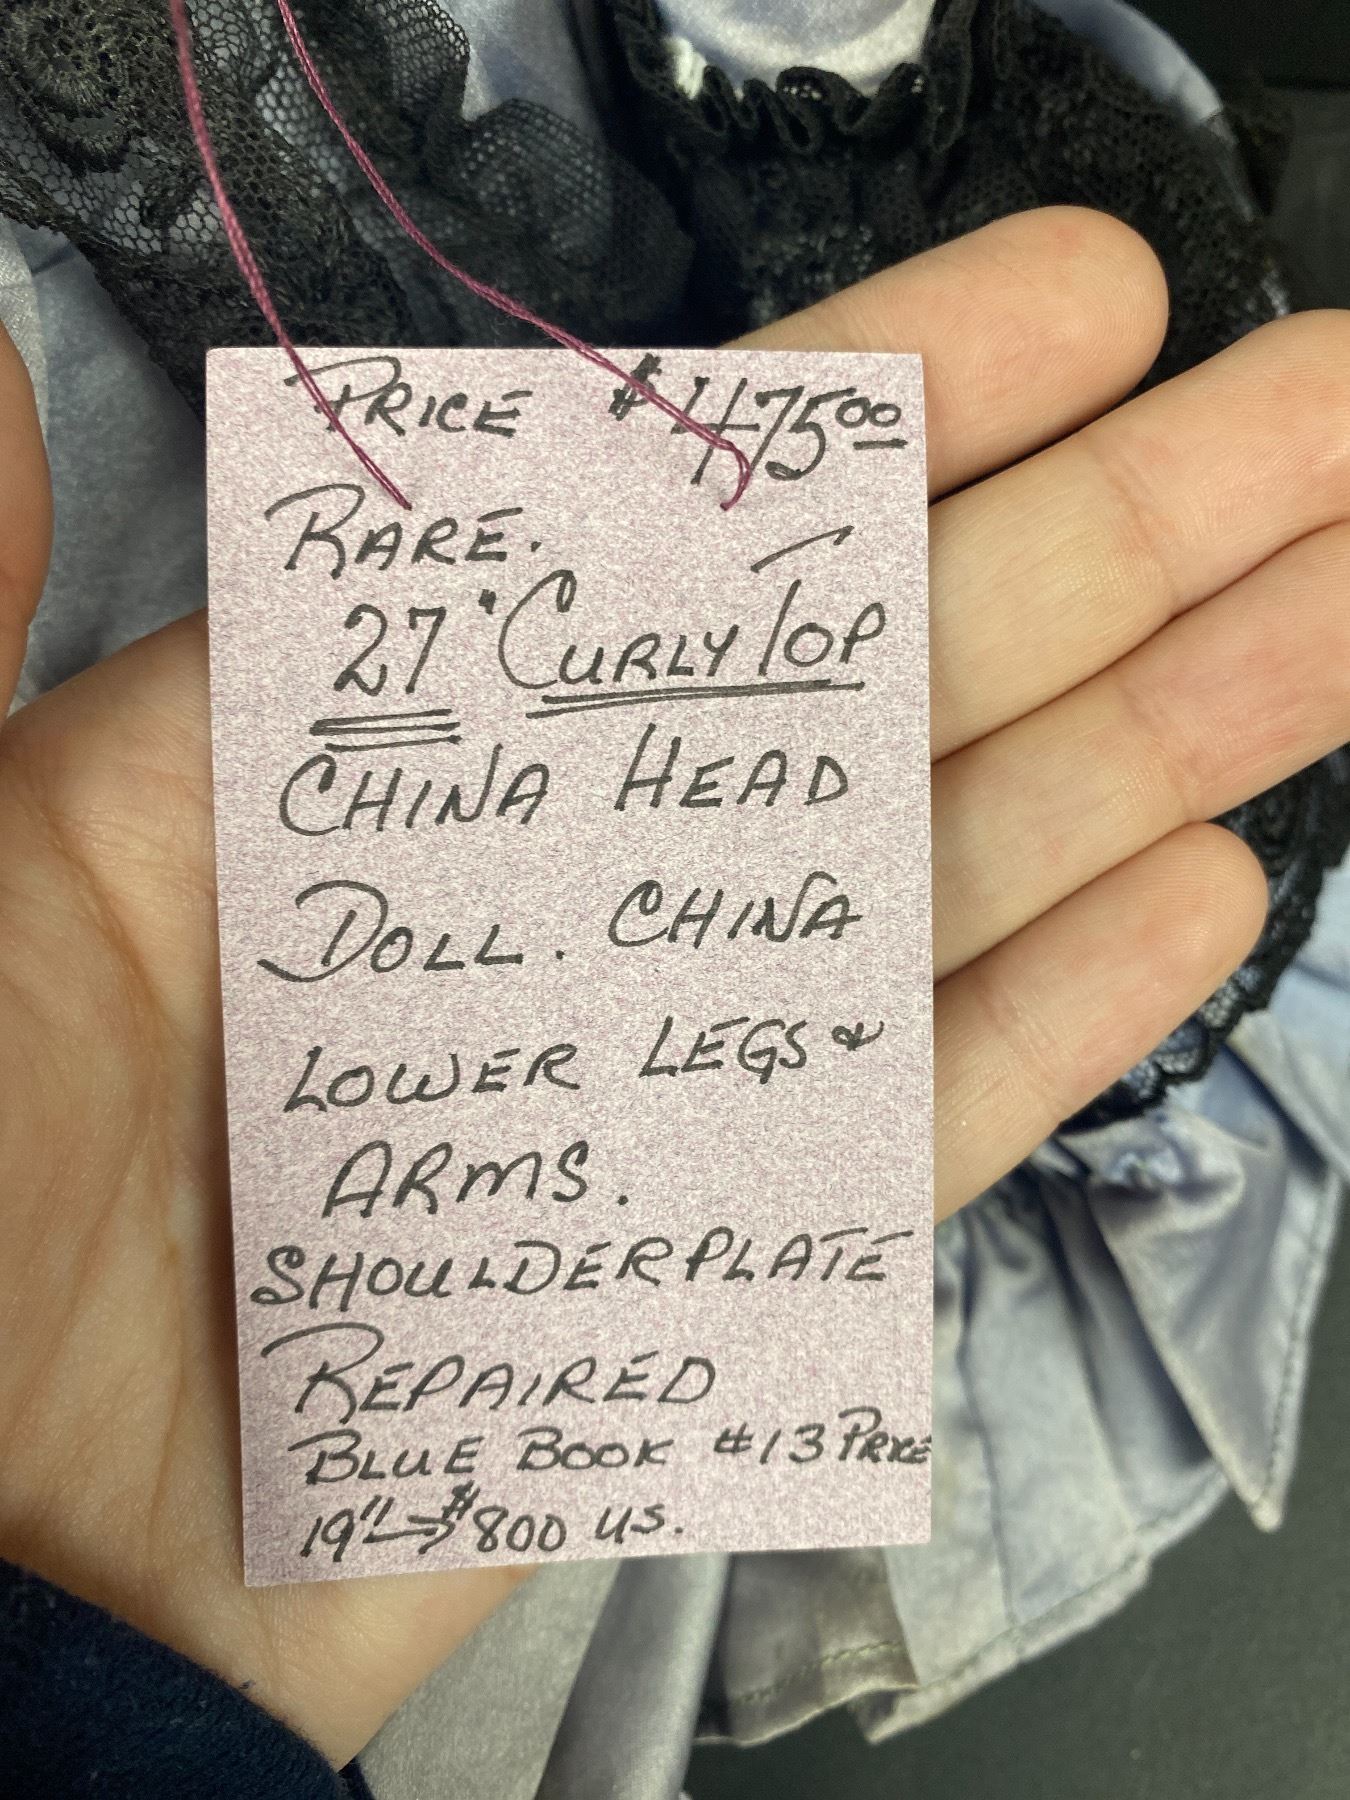 PRICE $475.00
RARE.
27" CURLY TOP
CHINA HEAD
DOLL. CHINA
LOWER LEGS &
ARMS.
SHOULDERPLATE
REPAIRED
BLUE BOOK #13 PRICE
19" → $800 US.